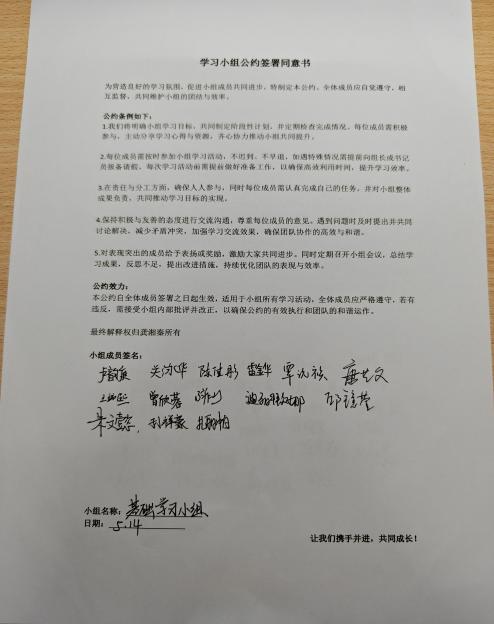 学习小组公约签署同意书
为营造良好的学习氛围，促进小组成员共同进步，特制定本公约。全体成员应自觉遵守，相
互监督，共同维护小组的团结与效率。
公约条例如下：
1.我们将明确小组学习目标，共同制定阶段性计划，并定期检查完成情况。每位成员需积极
参与，主动分享学习心得与资源，齐心协力推动小组共同提升。
2.每位成员需按时参加小组学习活动，不迟到、不早退，如遇特殊情况需提前向组长或书记
员报备请假。每次学习活动前需提前做好准备工作，以确保高效利用时间，提升学习效率。
3.在责任与分工方面，确保人人参与，同时每位成员需认真完成自己的任务，并对小组整体
成果负责，共同推动学习目标的实现。
4.保持积极与友善的态度进行交流沟通，尊重每位成员的意见，遇到问题时及时提出并共同
讨论解决，减少矛盾冲突，加强学习交流效果，确保团队协作的高效与和谐。
5.对表现突出的成员给予表扬或奖励，激励大家共同进步。同时定期召开小组会议，总结学
习成果，反思不足，提出改进措施，持续优化团队的表现与效率。
公约效力：
本公约自全体成员签署之日起生效，适用于小组所有学习活动，全体成员应严格遵守，若有
违反，需接受小组内部批评并改正，以确保公约的有效执行和团队的和谐运作。
最终解释权归龚湘秦所有
小组成员签名：
陈佳彤
曾欣蓉
小组名称：基础学习小组
日期：5.14
让我们携手并进，共同成长！